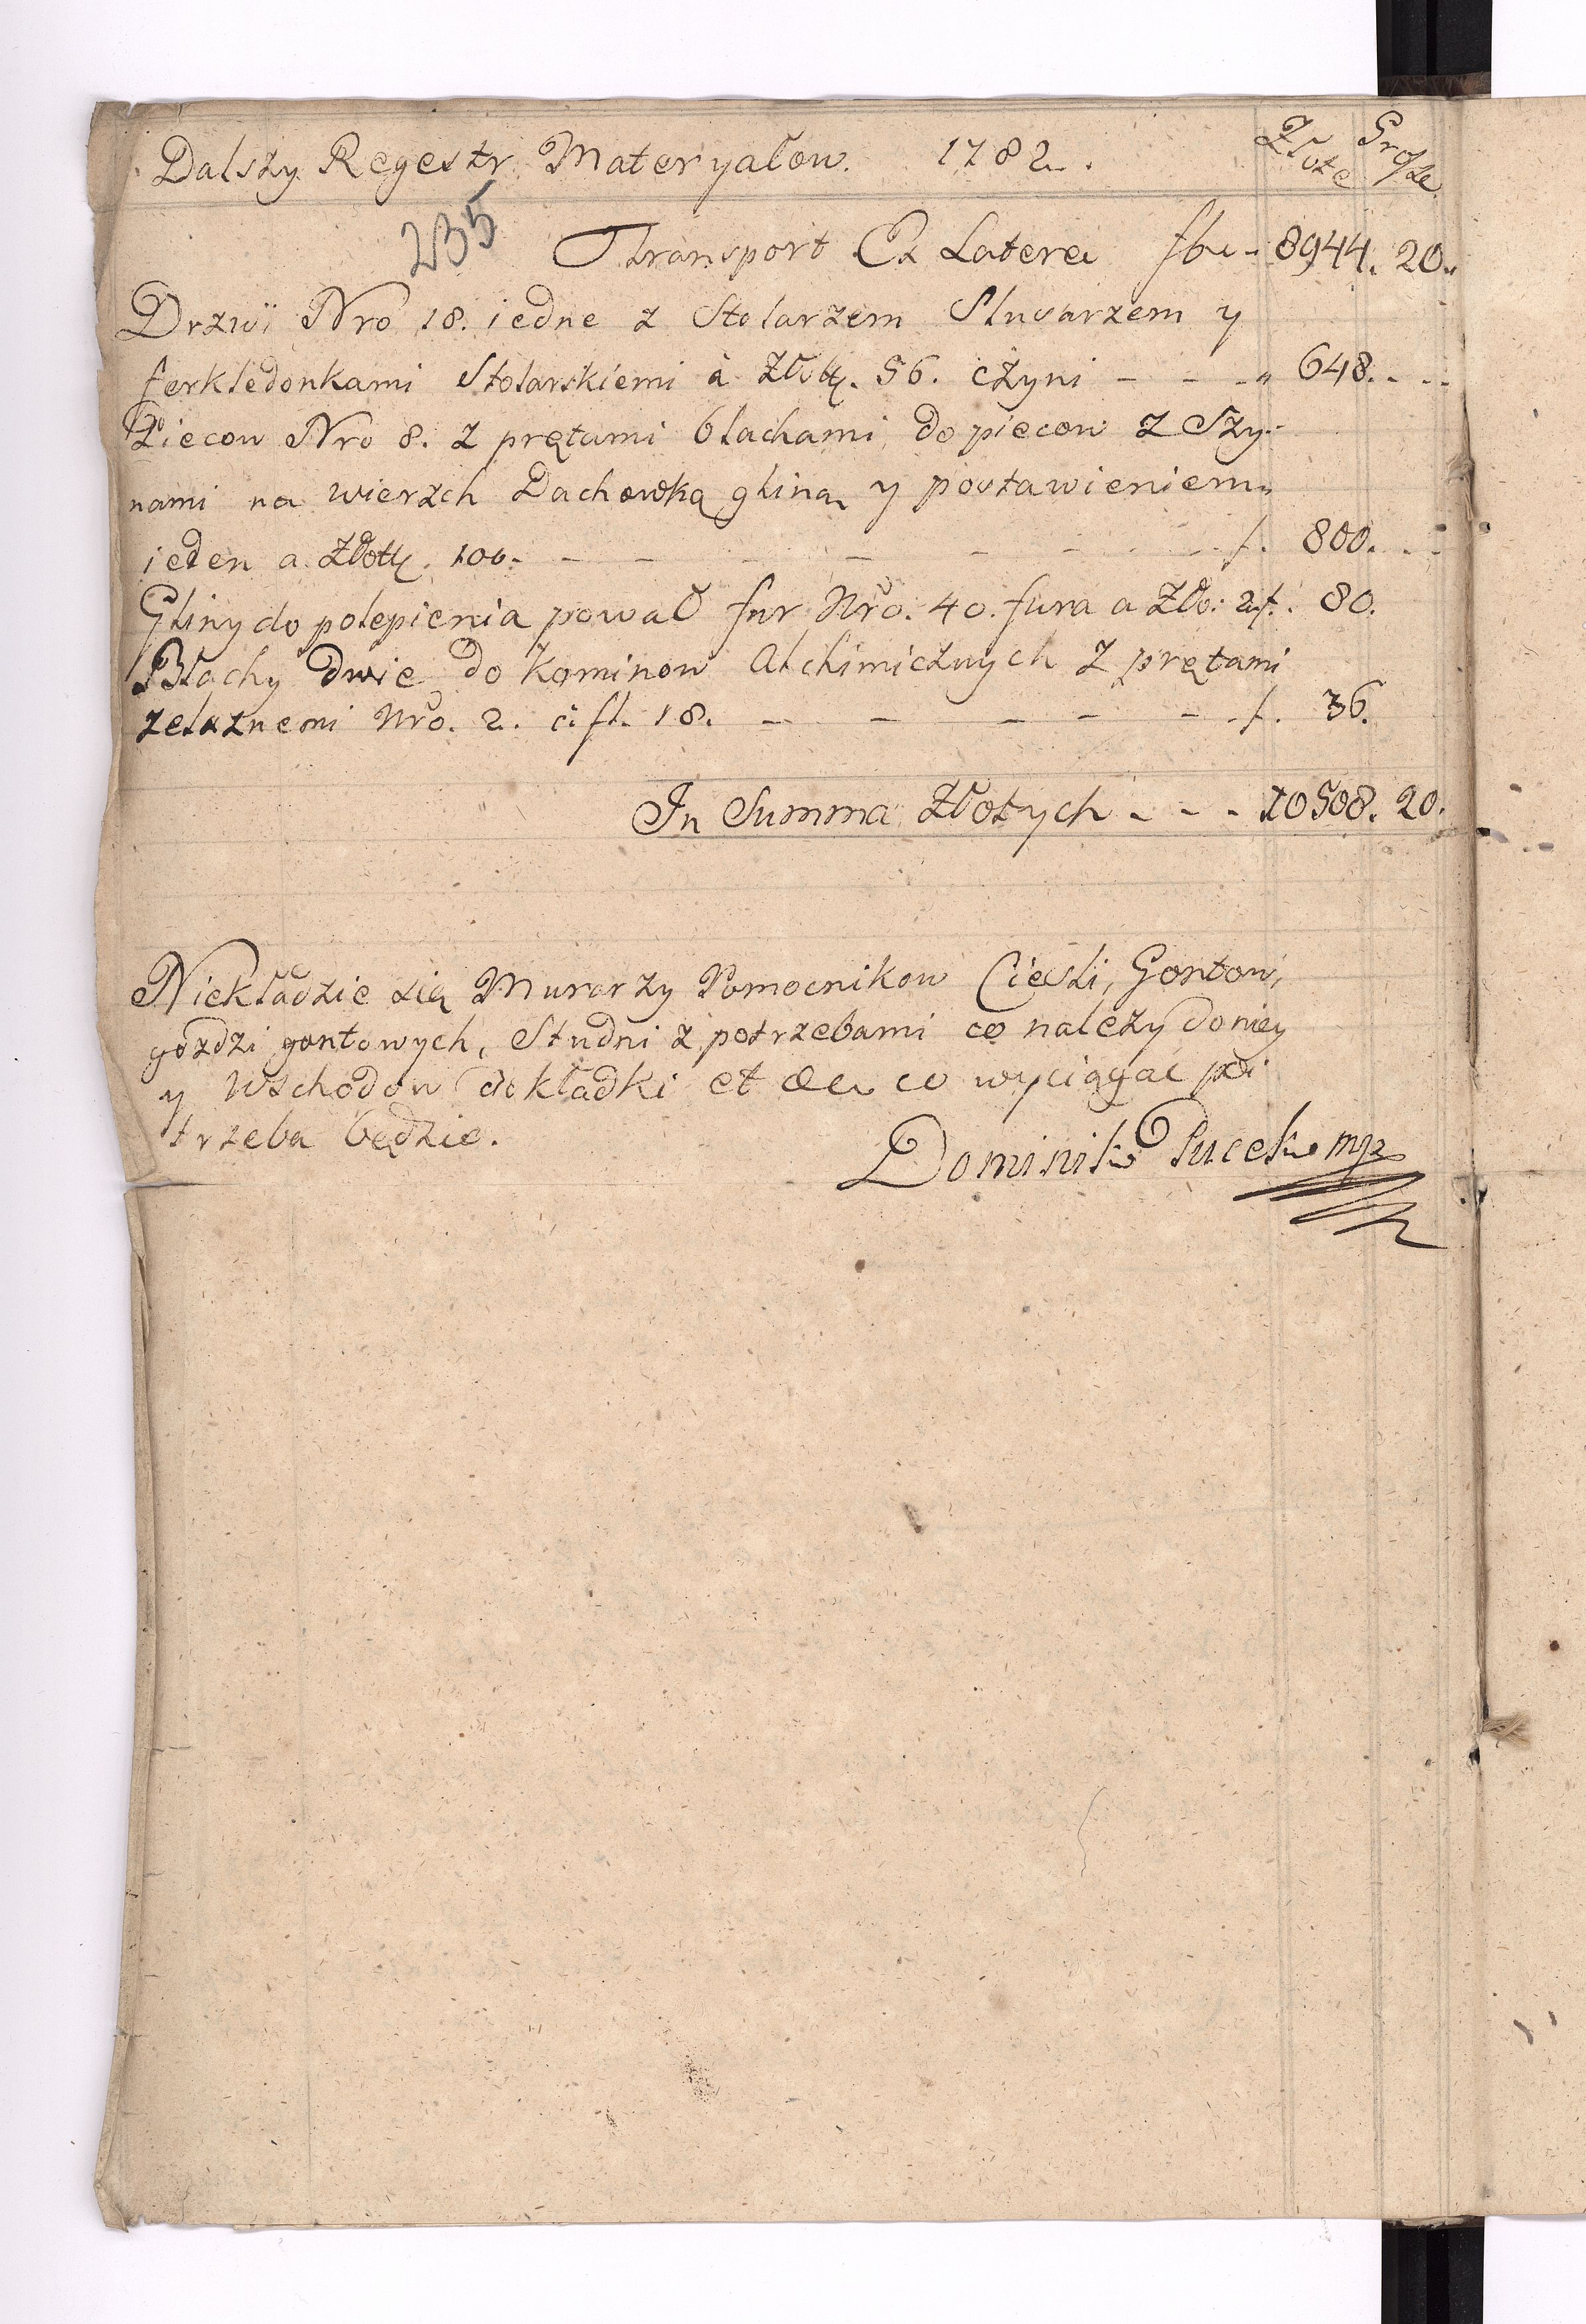 Dalszy Regestr Materyałow. 1782. Złote Grosze
235
Transport Ex Latere 8944. 20.
Drzwi Nro 18. iedne z Stolarzem Slusarzem y
ferkledonkami Stolarskiemi à Złoty. 36. czyni - - - 648. - -
Piecow Nro 8. z prętami blachami do piecow z Szy-
nami na wierzch Dachowką gliną y postawieniem
ieden a Złoty. 100. - - - - - - - f. 800. - -
Gliny do polepienia pował fur Nro. 40. fura a Zło: 2 f. 80.
Blachy dwie do kominow Alchimicznych z prętami
zelaznemi Nro. 2. à fl. 18. - - - - - f. 36.
In Summa Złotych - - - 10508. 20.
Niekładzie się Murarzy Pomocnikow Ciesli, Gontow,
gozdzi gontowych, Studni z potrzebami co nalezy do niey
y Wschodow dokładki et co wyciągac po
trzeba będzie.
Dominik Pucek mp